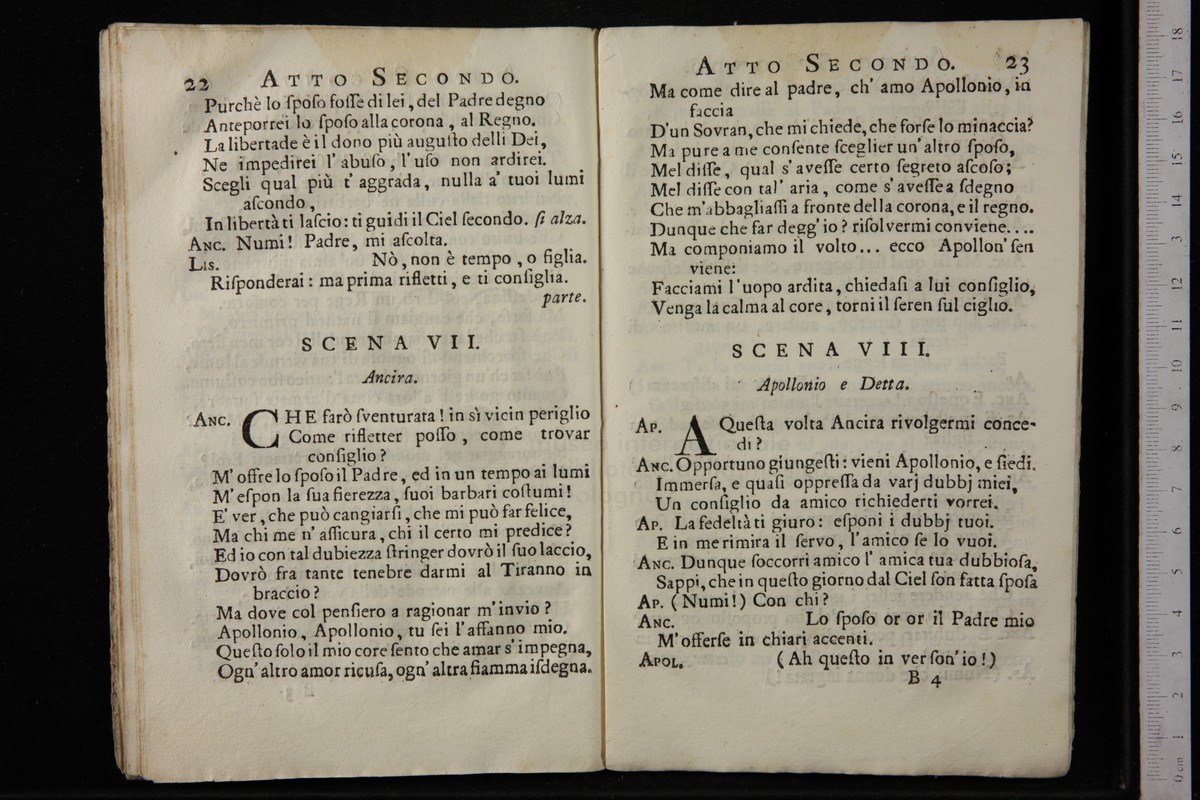 22 ATTO SECONDO.
Purchè lo ſpoſo foſſe di lei, del Padre degno
Anteporrei lo ſpoſo alla corona, al Regno.
La libertade è il dono più auguſto delli Dei,
Ne impedirei l' abuſo, l' uſo non ardirei.
Scegli qual più t' aggrada, nulla a' tuoi lumi
aſcondo,
In libertà ti laſcio: ti guidi il Ciel ſecondo. ſi alza.
ANC. Numi! Padre, mi aſcolta.
LIS. Nò, non è tempo, o figlia.
Riſponderai: ma prima rifletti, e ti conſiglia.
parte.
SCENA VII.
Ancira.
ANC. CHE farò ſventurata! in sì vicin periglio
Come rifletter poſſo, come trovar
conſiglio?
M' offre lo ſpoſo il Padre, ed in un tempo ai lumi
M' eſpon la ſua fierezza, ſuoi barbari coſtumi!
E' ver, che può cangiarſi, che mi può far felice,
Ma chi me n' aſſicura, chi il certo mi predice?
Ed io con tal dubiezza ſtringer dovrò il ſuo laccio,
Dovrò fra tante tenebre darmi al Tiranno in
braccio?
Ma dove col penſiero a ragionar m' invio?
Apollonio, Apollonio, tu ſei l' affanno mio.
Queſto ſolo il mio core ſento che amar s' impegna,
Ogn' altro amor ricuſa, ogn' altra fiamma iſdegna.
ATTO SECONDO. 23
Ma come dire al padre, ch' amo Apollonio, in
faccia
D'un Sovran, che mi chiede, che forſe lo minaccia?
Ma pure a me conſente ſceglier un' altro ſpoſo,
Mel diſſe, qual s' aveſſe certo ſegreto aſcoſo;
Mel diſſe con tal' aria, come s' aveſſe a ſdegno
Che m'abbagliaſſi a fronte della corona, e il regno.
Dunque che far degg' io? riſolvermi conviene....
Ma componiamo il volto... ecco Apollon' ſen
viene:
Facciami l'uopo ardita, chiedaſi a lui conſiglio,
Venga la calma al core, torni il ſeren ſul ciglio.
SCENA VIII.
Apollonio e Detta.
AP. A Queſta volta Ancira rivolgermi conce-
di?
ANC. Opportuno giungeſti: vieni Apollonio, e ſiedi.
Immerſa, e quaſi oppreſſa da varj dubbj miei,
Un conſiglio da amico richiederti vorrei.
AP. La fedeltà ti giuro: eſponi i dubbj tuoi.
E in me rimira il ſervo, l'amico ſe lo vuoi.
ANC. Dunque ſoccorri amico l' amica tua dubbioſa,
Sappi, che in queſto giorno dal Ciel ſon fatta ſpoſa
AP. (Numi!) Con chi?
ANC. Lo ſpoſo or or il Padre mio
M' offerſe in chiari accenti.
APOL. (Ah queſto in ver ſon' io!)
B 4